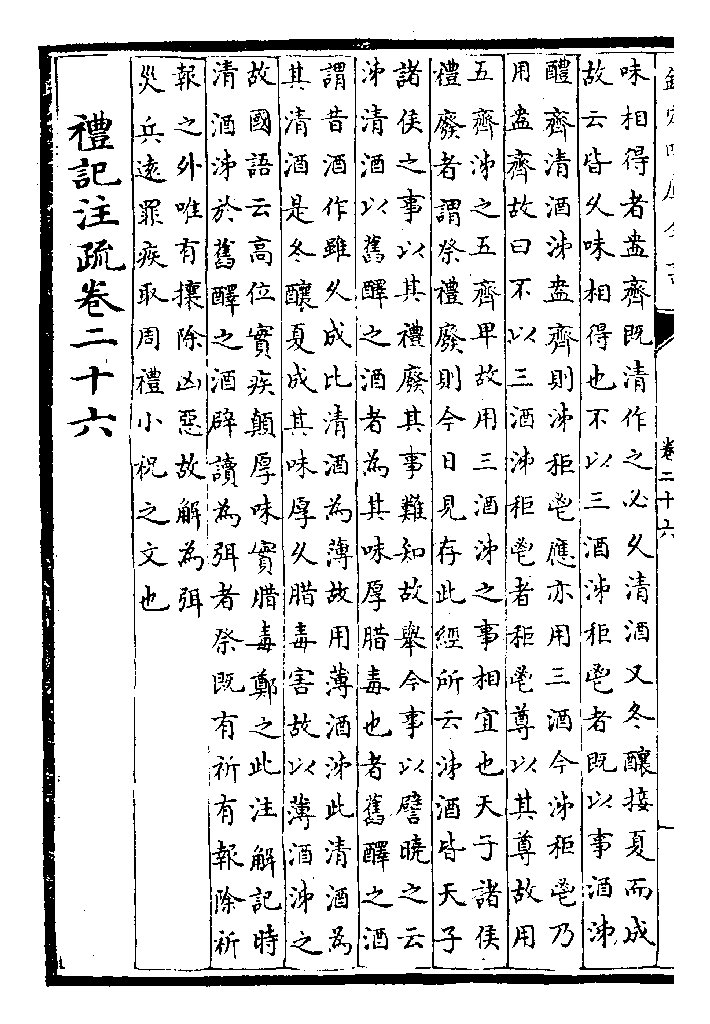 欽定四庫全書
卷二十六
味相得者盎齊既清作之必久清酒又冬釀接夏而成
故云皆久味相得也不以三酒泲秬鬯者既以事酒泲
醴齊清酒泲盎齊則泲秬鬯應亦用三酒今泲秬鬯乃
用盎齊故曰不以三酒泲秬鬯者秬鬯尊以其尊故用
五齊泲之五齊卑故用三酒泲之事相宜也天子諸侯
禮廢者謂祭禮廢則今日見存此經所云泲酒皆天子
諸侯之事以其禮廢其事難知故舉今事以譬曉之云
泲清酒以舊醳之酒者為其味厚腊毒也者舊醳之酒
謂昔酒作雖久成比清酒為薄故用薄酒泲此清酒為
其清酒是冬釀夏成其味厚久腊毒害故以薄酒泲之
故國語云高位實疾顛厚味實腊毒鄭之此注解記時
清酒泲於舊醳之酒辟讀為弭者祭既有祈有報除祈
報之外唯有攘除凶惡故解為弭
災兵逺罪疾取周禮小祝之文也
禮記注疏卷二十六